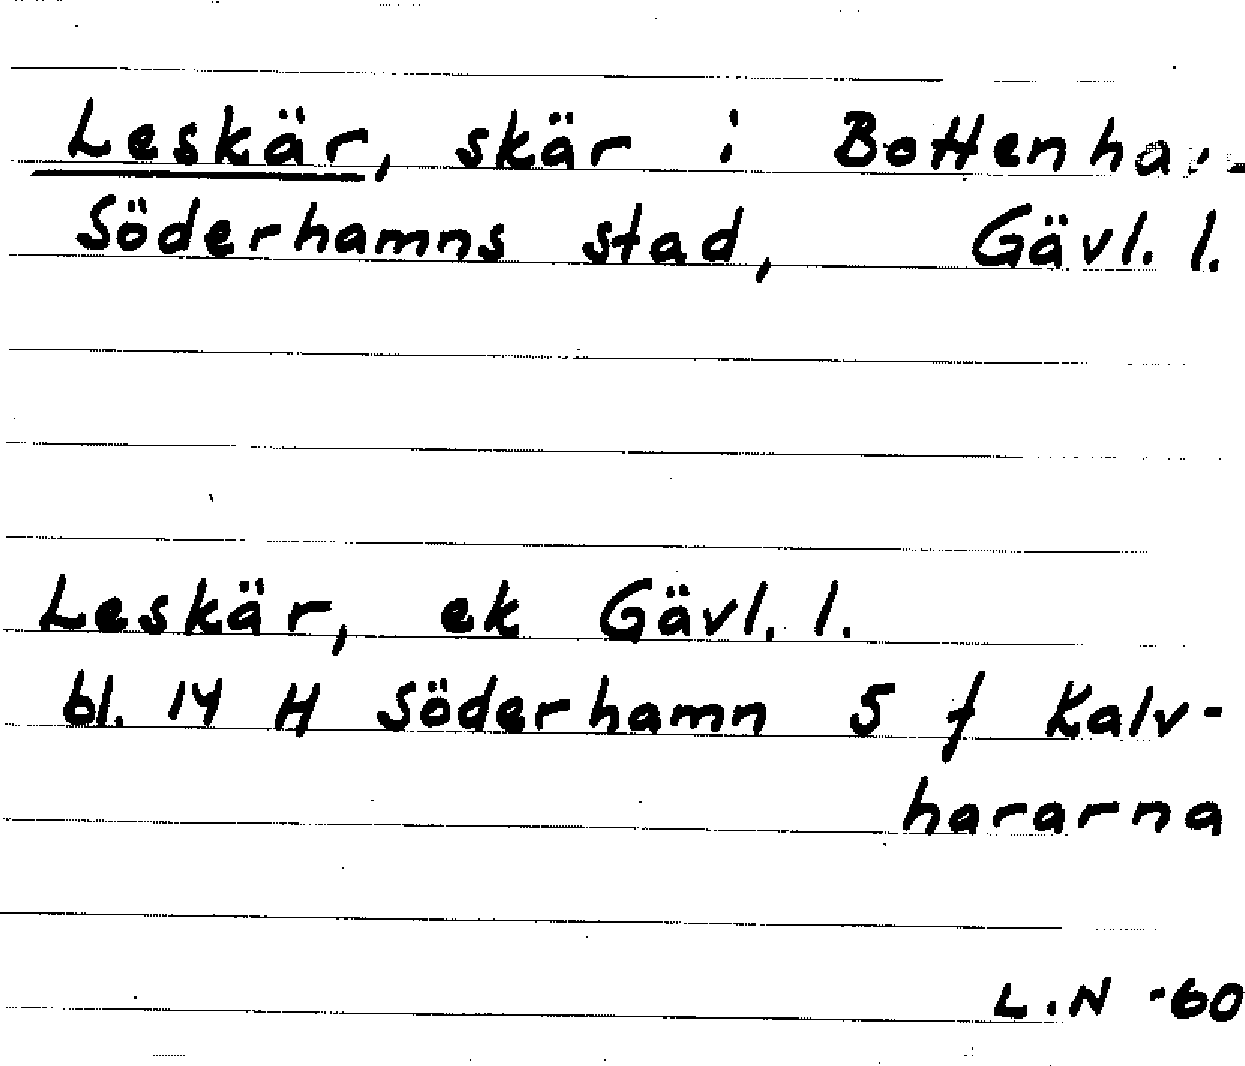 Leskär, skär i Bottenhav-
Söderhamns stad, Gävl. l.
Leskär, ek Gävl. l.
bl. 14 H Söderhamn 5 f Kalv-
hararna
L.N -60